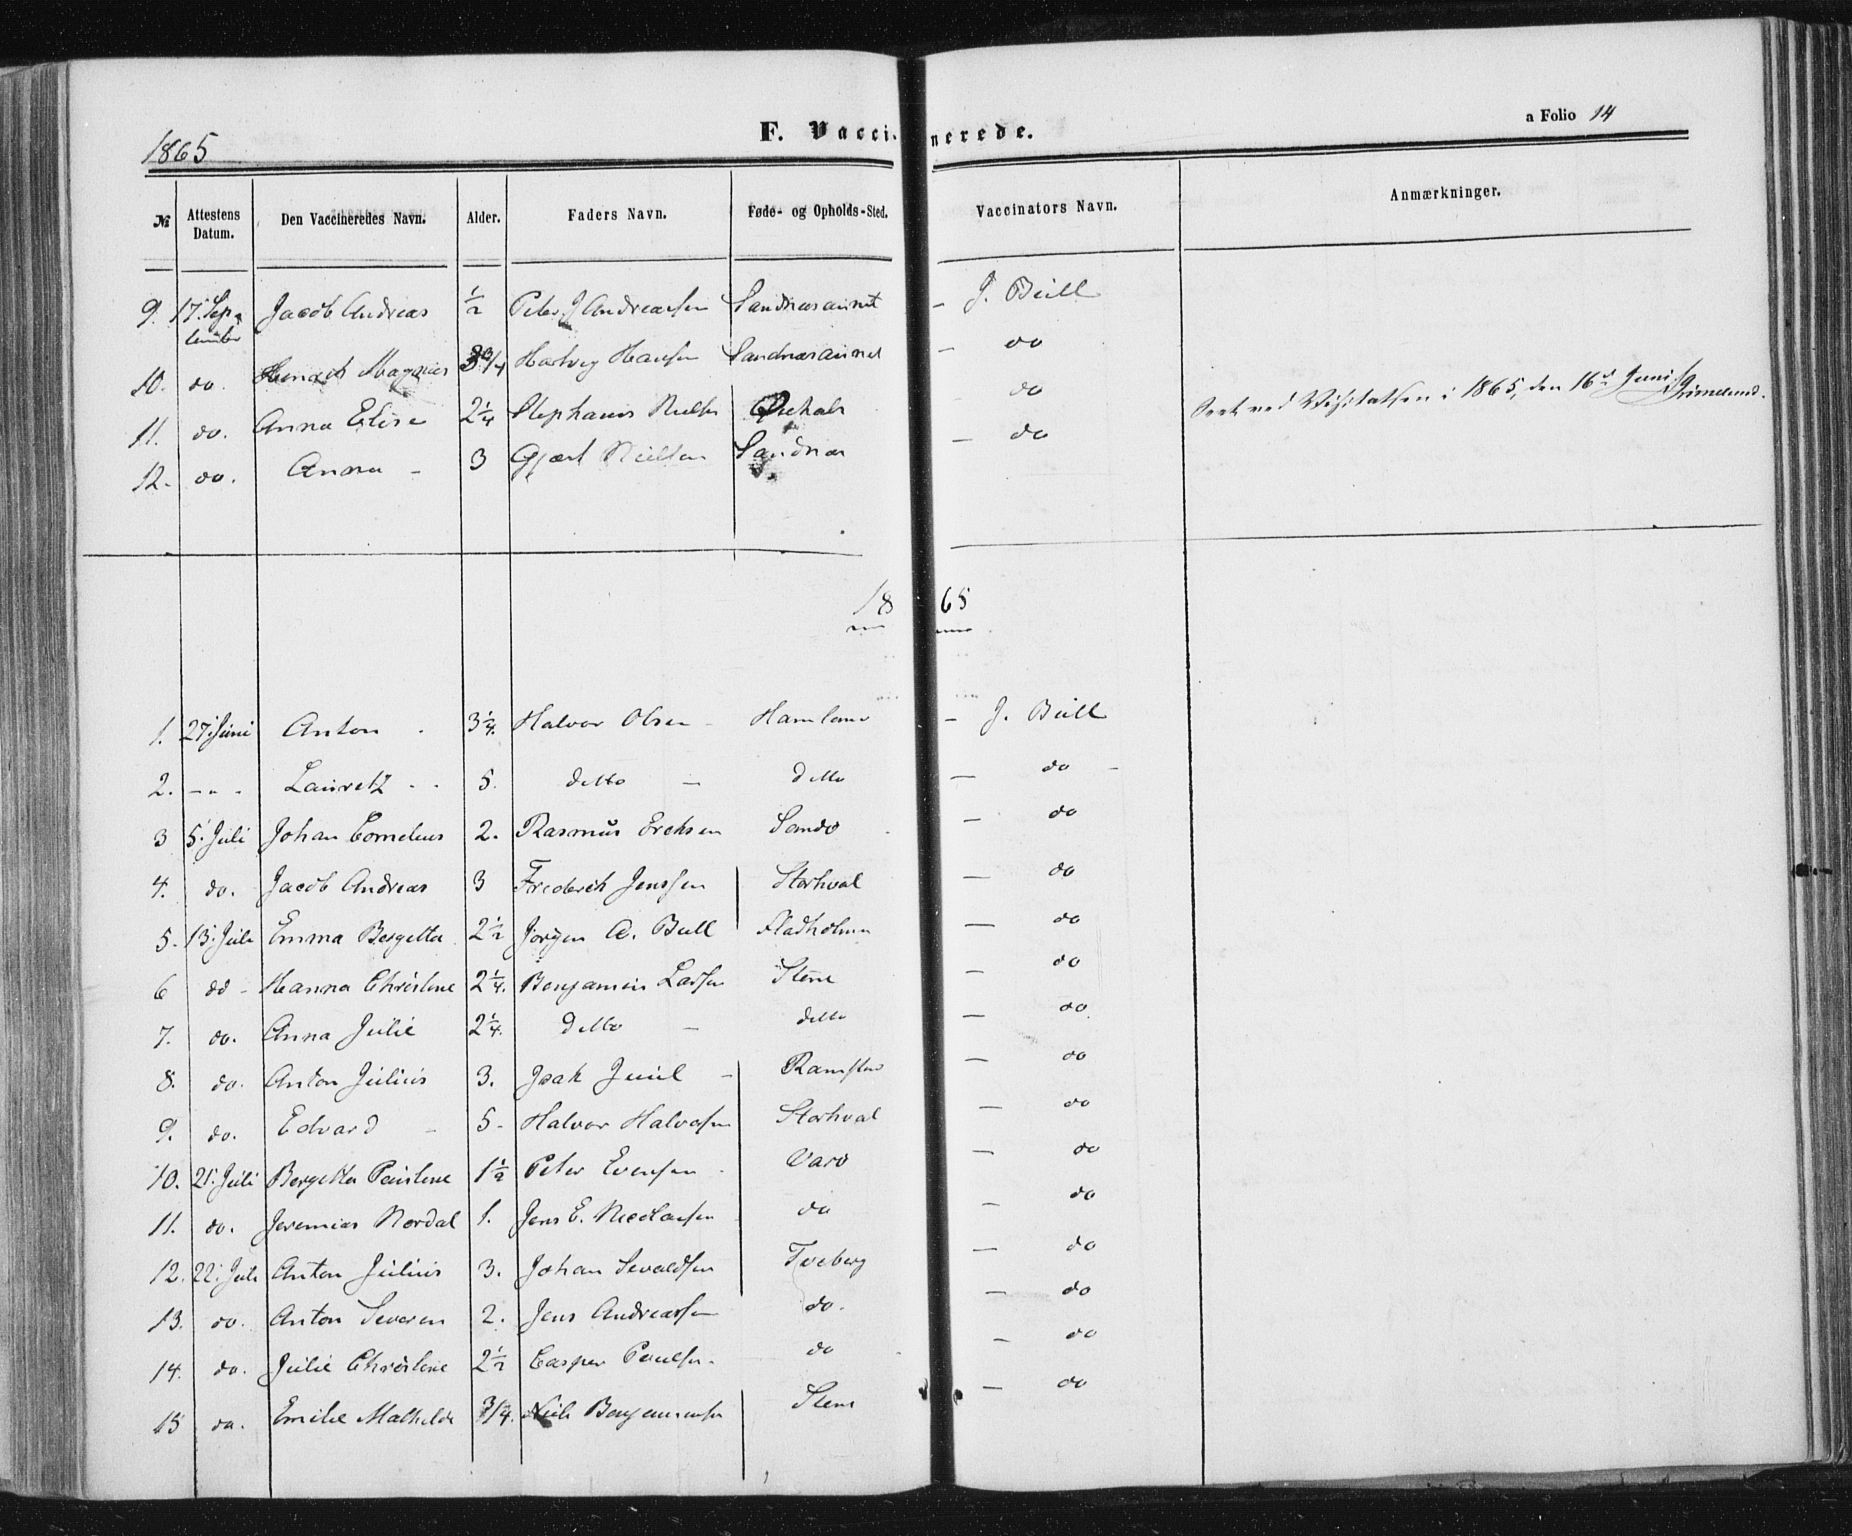 1865 F. Vaccinerede. a Folio 14
№ Attestens Datum. Den Vaccineredes Navn. Alder. Faders Navn. Føde- og Opholds-Sted. Vaccinators Navn. Anmærkninger.
9. 17. September Jacob Andreas ½ Peter J Andreassen Sandnæsaunet – J. Bull
10. do. Magnus Hartvig Hansen Sandnæsaunet – do
11. do. Anna Elise 2¼ Stephanus Nielsen – do
Seet ved Visitatsen i 1865, den 16de Juni Grimelund.
12. do. Anna – 3 Gjært Nielsen Sandnæs – do
1865
1. 27. Juni Anton 3¼. Halvor Olsen – – J. Bull
2. – „ – Lauretz 5. ditto – ditto – do –
3 5. Juli Johan Cornelius 2. Rasmus Ericksen Sandø – do
4. do. Jacob Andreas 3 Frederik Jenssen Storhval – do
5. 13. Juli Emma Bergetta 2½ Jørgen A. Bull Fladholmen – do
6 do – Hanna Christine 2¼. Benjamin Larsen Stene – do
7. do. Anna Julie 2¼. ditto – ditto – do
8. do. Anton Julius 3. Isak Juul – Ramstad – do
9. do. Edvard – 5. Halvor Halvorsen Storhval – do
10. 21. Juli Bergetta Pauline 1½ Peter Evensen Varø – do
11. do. Jeremias Nordal 1. Jens E. Nicolaisen do – do
12. 22. Juli Anton Julius 3. Johan Sevaldsen Tveberg – do
13. do. Anton Severin 2. Jens Andreassen do. – do
14. do. Julie Christine 2½ Casper Paulsen. do – do
15 do. Emilie Mathilde 3/4. Niels Benjaminsen Stene – do